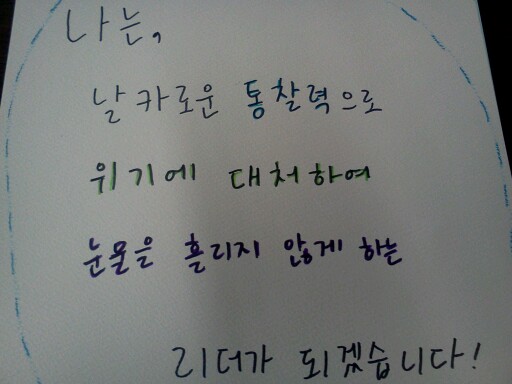 나는,
날카로운 통찰력으로
위기에 대처하여
눈물을 흘리지 않게 하는
리더가 되겠습니다!